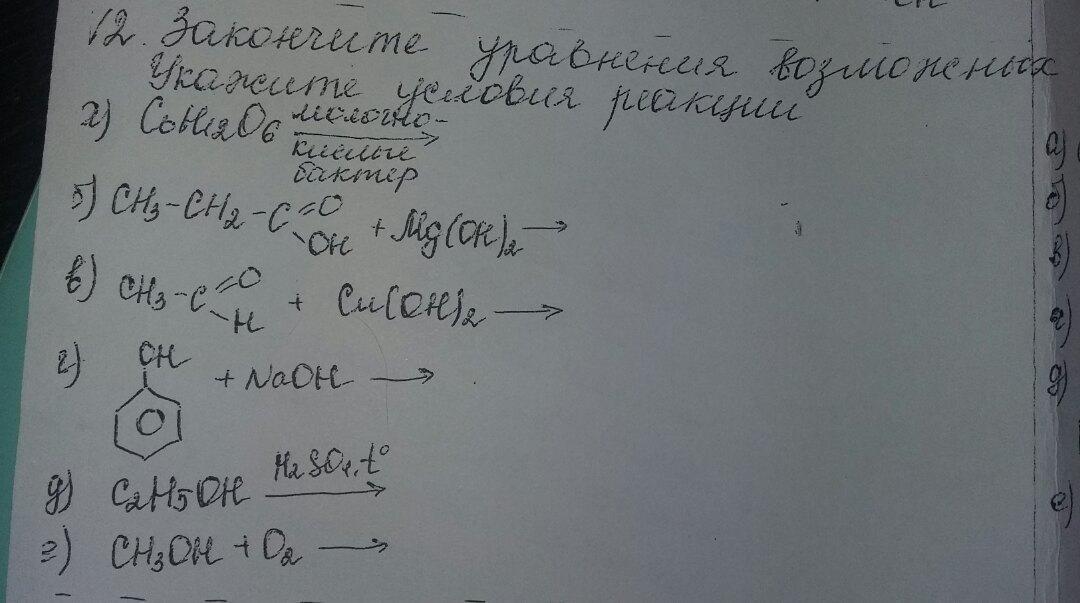 √2. Закончите уравнения возможных
Укажите условия реакции
а) C6H12O6 молочно-кислые бактер →
б) CH3-CH2-C=O
OH + Mg(OH)2 →
в) CH3-C=O
H + Cu(OH)2 →
г) OH + NaOH →
д) C2H5OH H2SO4, t° →
е) CH3OH + O2 →
а)
б)
в)
г)
д)
е)